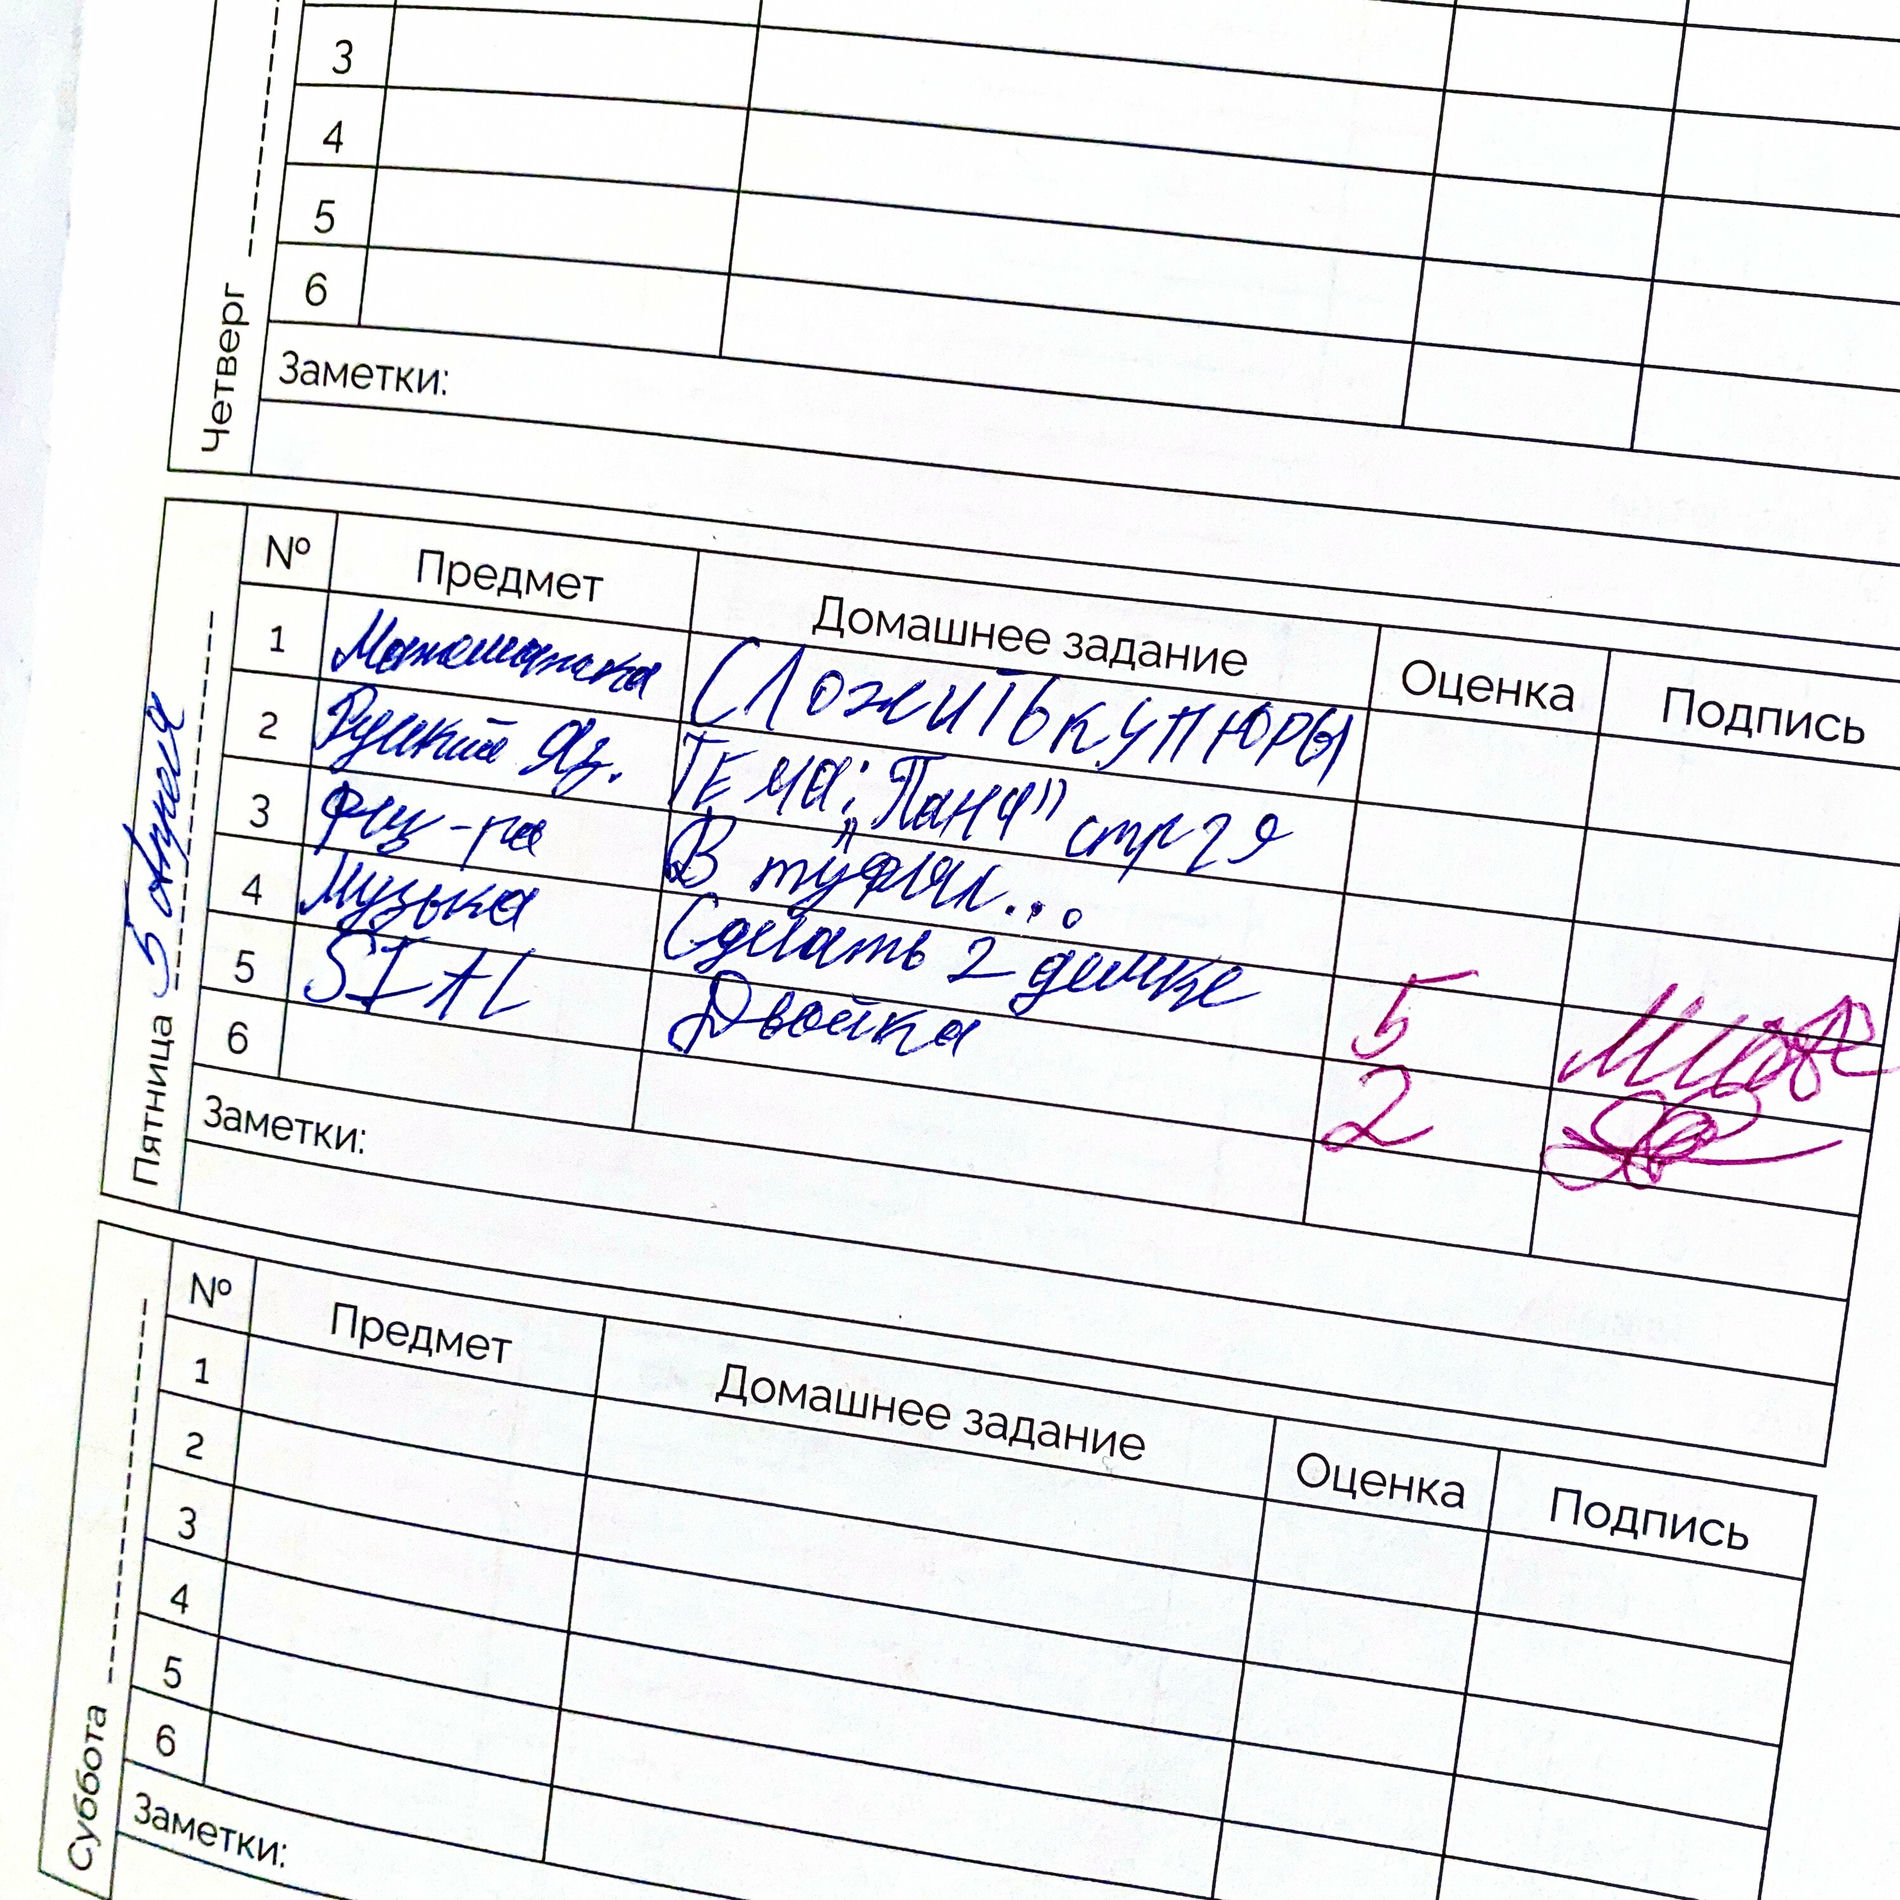 3
4
5
6
Заметки:
Четверг
№ Предмет Домашнее задание Оценка Подпись
1 Математика СЛОЖИТЬ КУПЮРЫ
2 Русский яз. ТЕМА: „Пана” стр 29
3 Физ-ра В туфлях...
4 Музыка Сделать 2 5
5 SIAL Двойка 2
6
Заметки:
Пятница 5 Апреля
№ Предмет Домашнее задание Оценка Подпись
1
2
3
4
5
6
Заметки:
Суббота